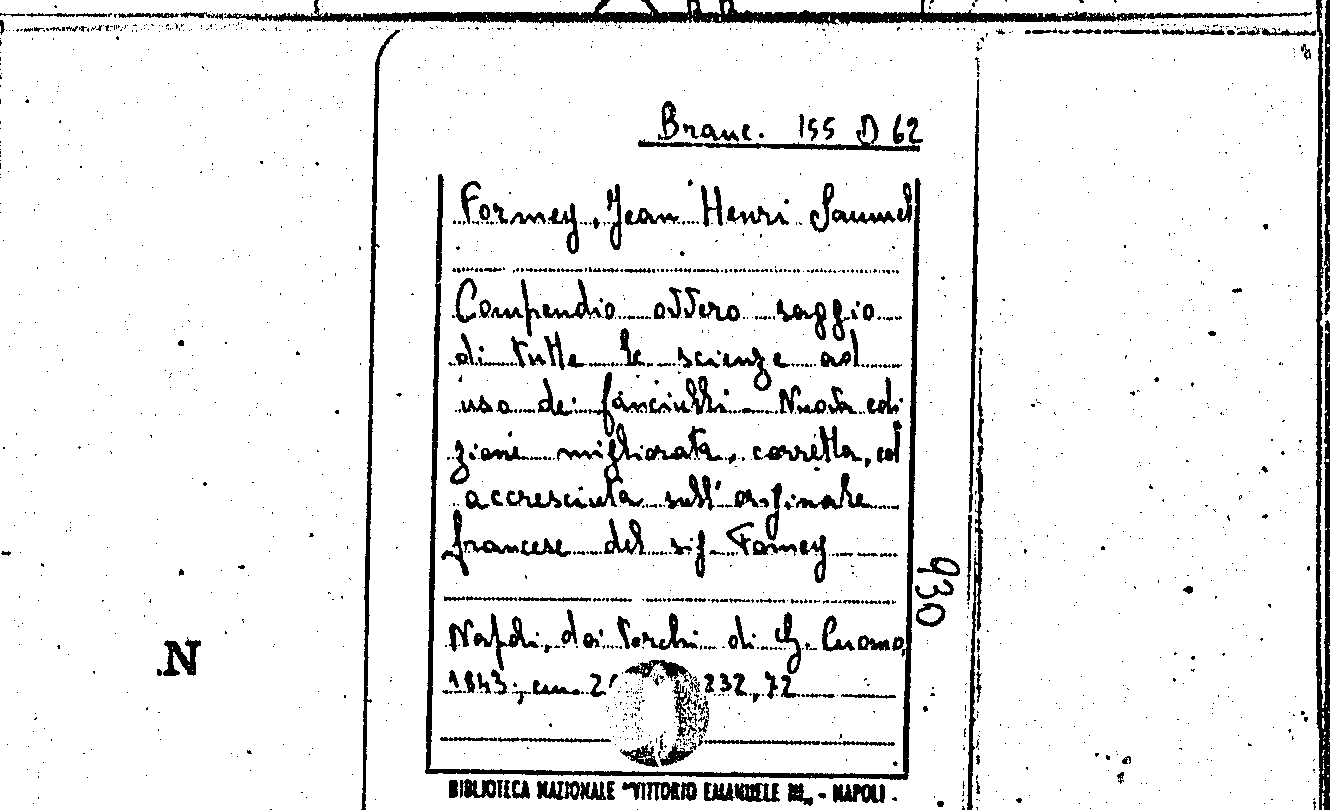 Branc. 155 D 62
Formey, Jean Henri Samuel
Compendio ovvero saggio
di tutte le scienze ad
uso dei fanciulli. Nuova edi
zione migliorata, corretta, ed
accresciuta sull'originale
francese del sig. Formey
930
Napoli, dai torchi di G. Cuomo,
1843; cm. 232, 72
N
BIBLIOTECA NAZIONALE "VITTORIO EMANUELE III„ - NAPOLI.